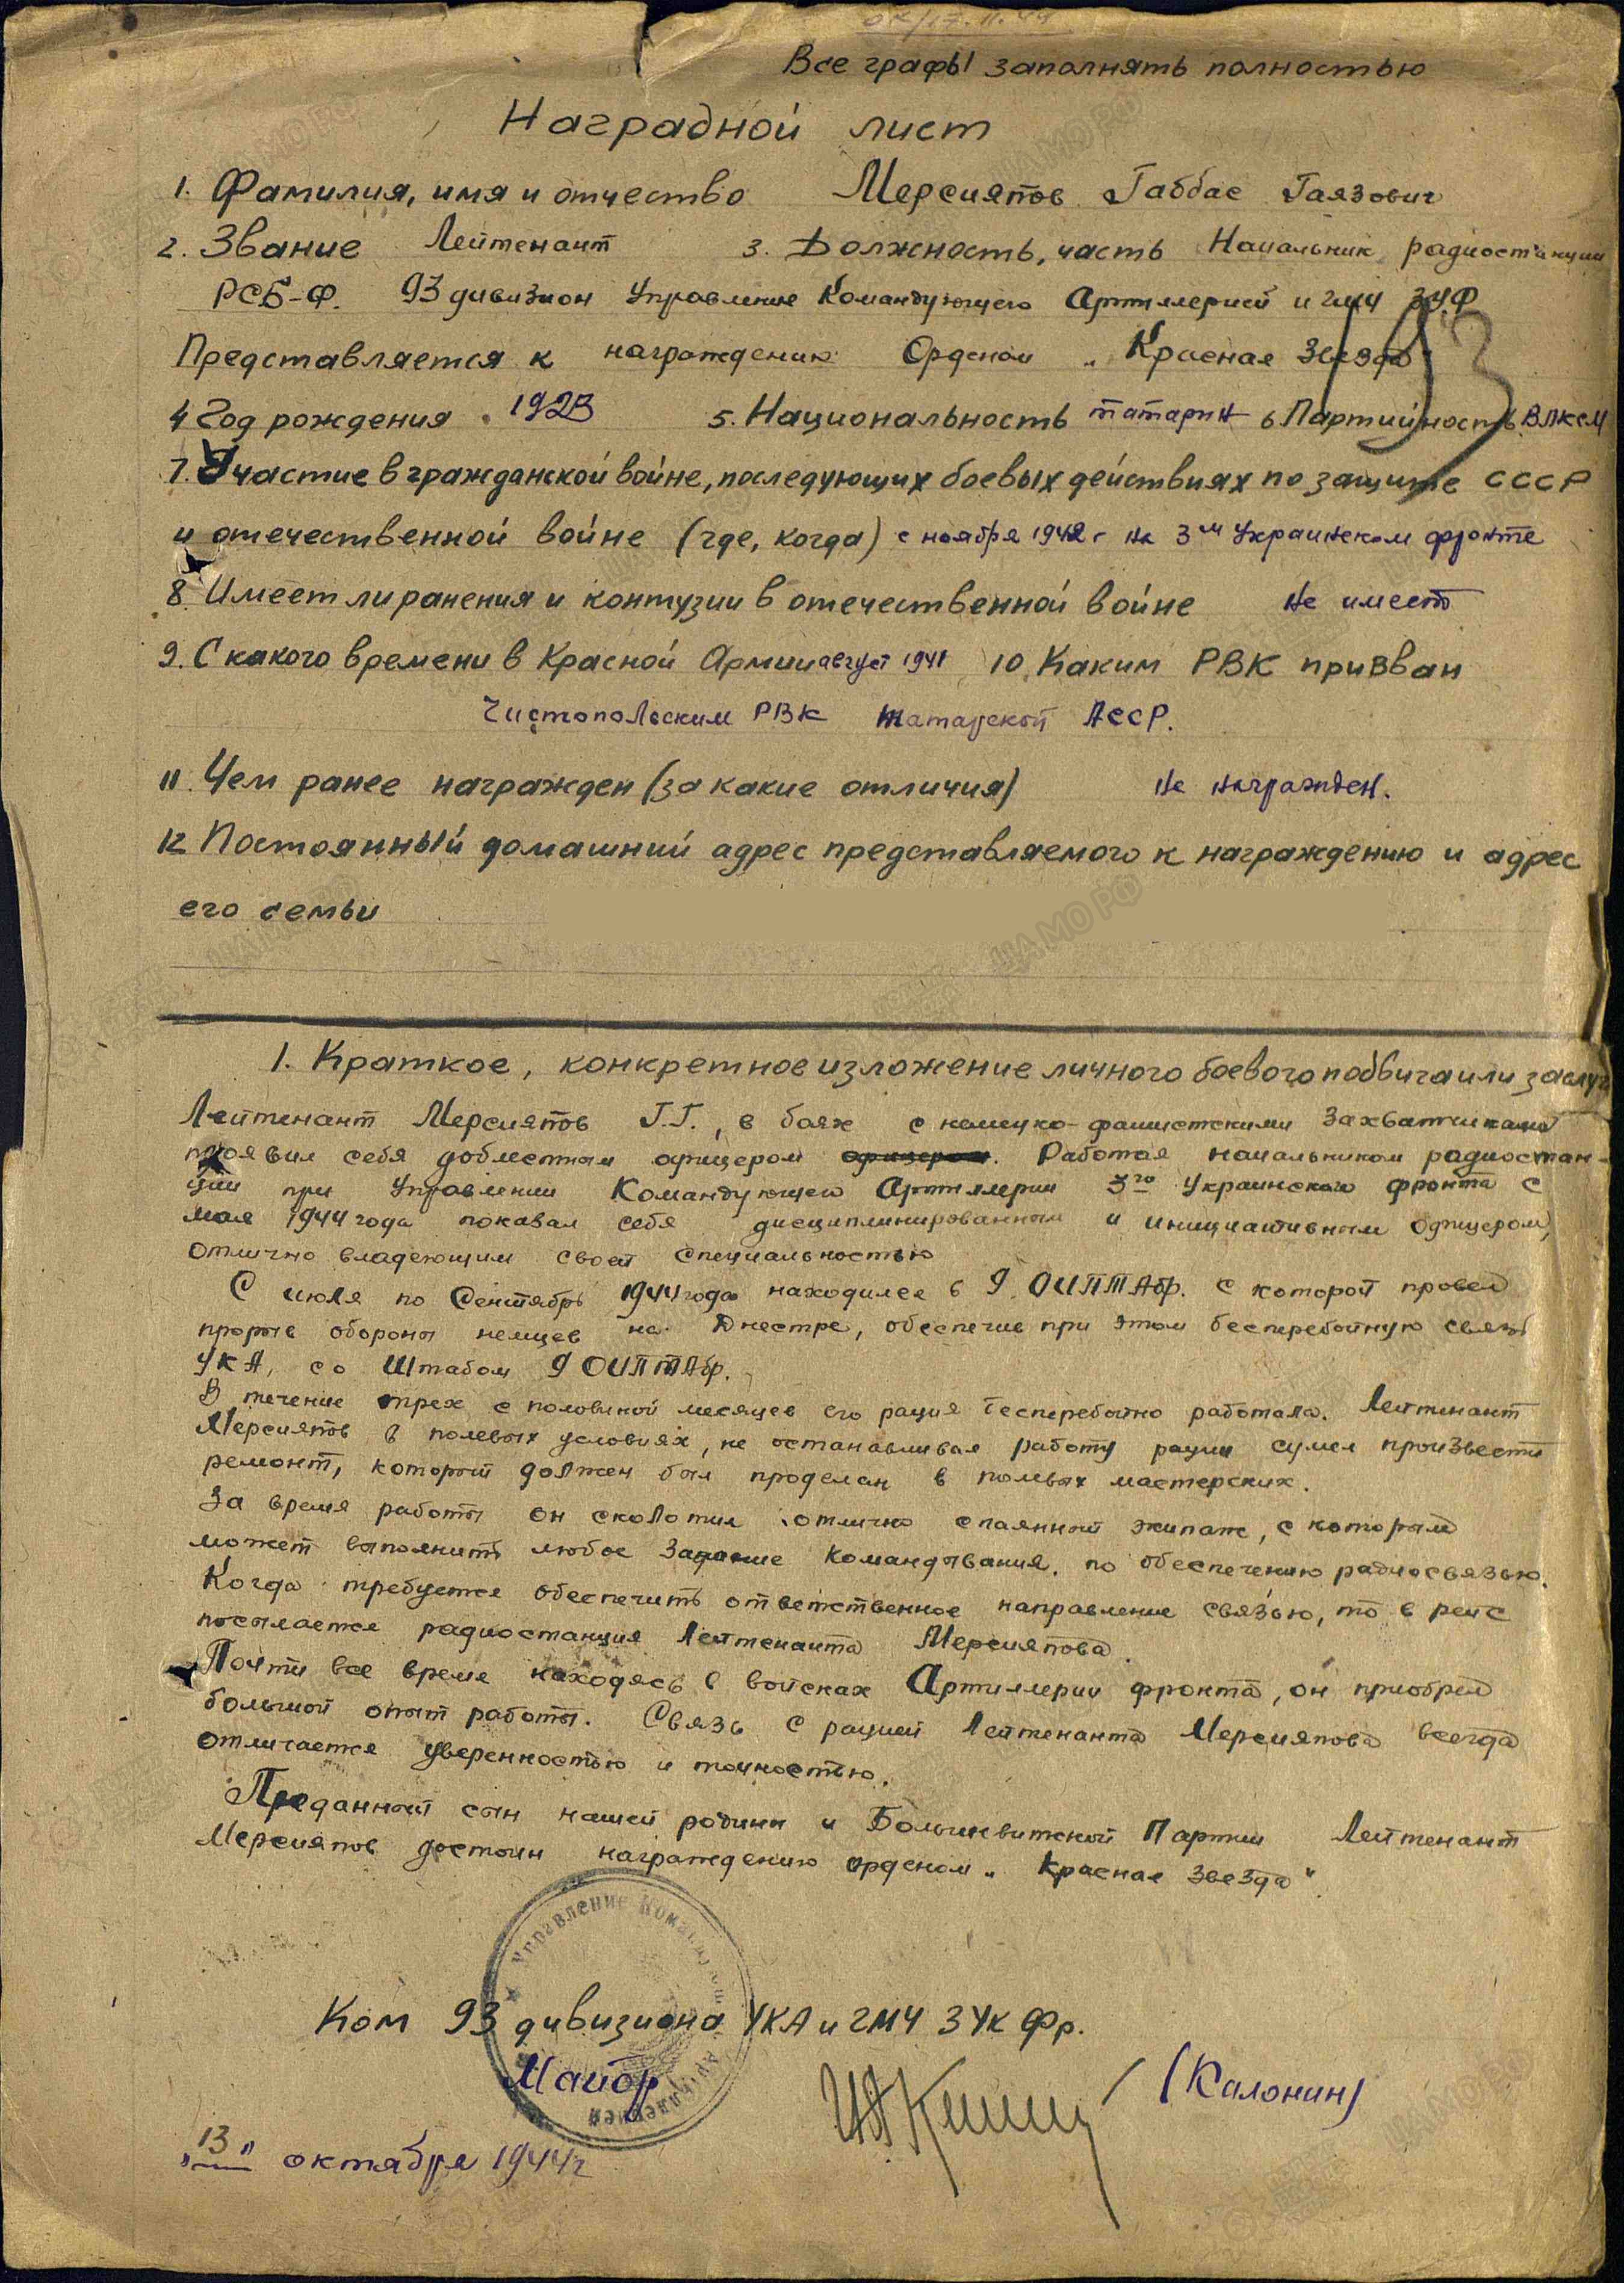 Все графы заполнять полностью
Наградной лист
1. Фамилия, имя и отчество Мерсияпов Габбас Гаязович
2. Звание Лейтенант 3. Должность, часть Начальник радиостанции
РСБ-Ф. 93 дивизион Управление Командующего Артиллерией и ГМЧ 3УФ
Представляется к награждению Орденом „Красная Звезда"
4 Год рождения 1923 5. Национальность татарин 6 Партийность ВЛКСМ
7. Участие в гражданской войне, последующих боевых действиях по защите СССР
и отечественной войне (где, когда) с ноября 1942 г на 3м Украинском фронте
8. Имеет ли ранения и контузии в отечественной войне не имеет
9. С какого времени в Красной Армии август 1941 10. Каким РВК призван
Чистопольским РВК татарской АССР.
11. Чем ранее награжден (за какие отличия) не награжден.
12 Постоянный домашний адрес представляемого к награждению и адрес
его семьи
1. Краткое, конкретное изложение личного боевого подвига или заслуг
Лейтенант Мерсияпов Г.Г., в боях с немецко-фашистскими захватчиками
проявил себя доблестным офицером офицером. Работая начальником радиостан-
ции при Управлении Командующего Артиллерии 3го Украинского фронта с
мая 1944 года показал себя дисциплинированным и инициативным офицером,
отлично владеющим своей специальностью
С июля по Сентябрь 1944 года находился в 9 ОИПТАбр. с которой провел
прорыв обороны немцев на Днестре, обеспечив при этом бесперебойную связь
УКА, со Штабом 9 ОИПТАбр.
В течение трех с половиной месяцев его рация бесперебойно работала. Лейтенант
Мерсияпов в полевых условиях, не останавливая работу рации сумел произвести
ремонт, который должен был проделан в полевых мастерских.
За время работы он сколотил отлично спаянный экипаж, с которым
может выполнить любое Задание Командывания. по обеспечению радиосвязью.
Когда требуется обеспечить ответственное направление связью, то в рейс
посылается радиостанция Лейтенанта Мерсияпова.
Почти все время находясь в войсках Артиллерии фронта, он приобрел
большой опыт работы. Связь с рацией Лейтенанта Мерсияпова всегда
отличается уверенностью и точностью.
Преданный сын нашей родины и Большевитской Партии Лейтенант
Мерсияпов достоин награждению орденом „Красная Звезда"
Ком 93 дивизиона УКА и ГМЧ 3 Ук Фр.
Майор (Калонин)
„13" октября 1944 г